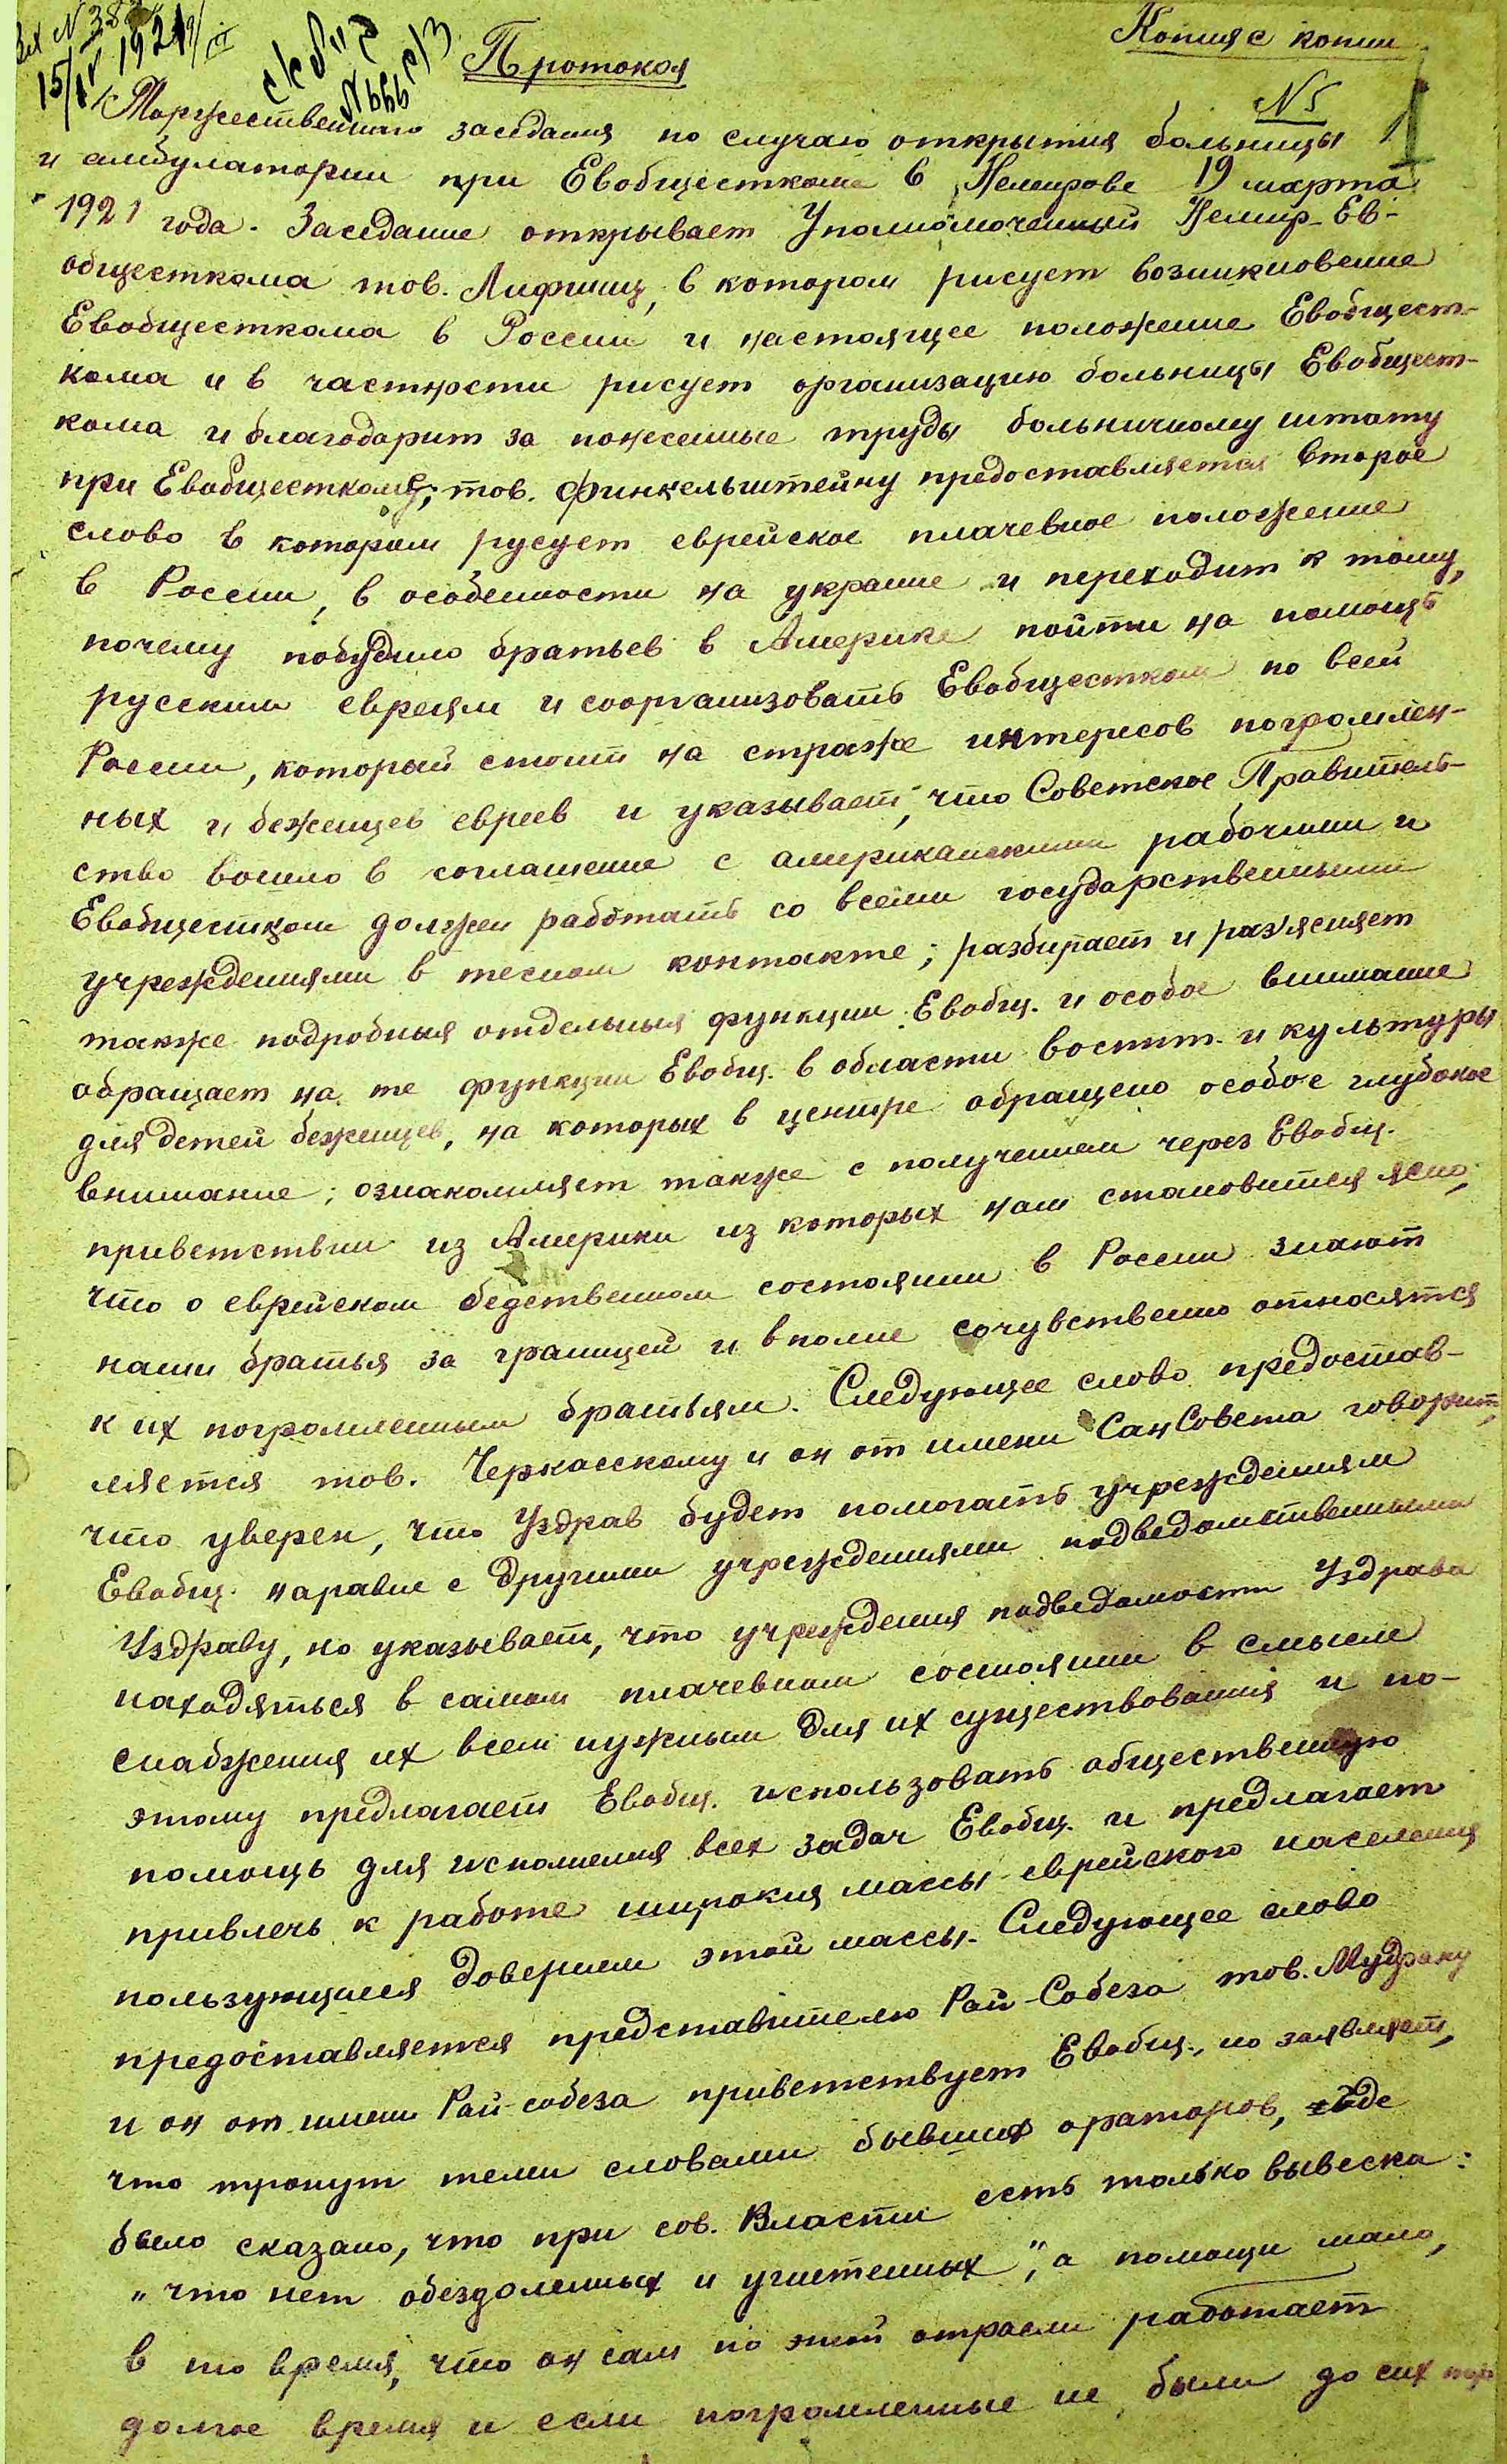 Вх N 38
15/IV 1921
N 666
Копия с копии
Протокол
N 5
Торжественного заседания по случаю открытия больницы
и амбулатории при Евобщесткоме в Немирове 19 марта
1921 года. Заседание открывает Уполномоченный Немир-Ев-
общесткома тов. Лифшиц, в котором рисует возникновение
Евобщесткома в России и настоящее положение Евобщест-
кома и в частности рисует организацию больницы Евобщест-
кома и благодарит за понесенные труды больничному штату
при Евобщесткоме; тов. Финкельштейну предоставляется второе
слово в котором русует еврейское плачевное положение
в России, в особенности на украине и переходит к тому,
почему побудило братьев в Америке пойти на помощь
русским евреям и соорганизовать Евобщестком по всей
России, который стоит на страже интересов погромлен-
ных и беженцев евреев и указывает, что Советское Правитель-
ство вошло в соглашение с американскими рабочими и
Евобщестком должен работать со всеми государственными
учреждениями в тесном контакте; разбирает и раз'ясняет
также подробныя отдельныя функции Евобщ. и особое внимание
обращает на те функции Евобщ. в области воспит. и культуры
для детей беженцев, на которых в центре обращено особое глубокое
внимание; ознакомляет также с получением через Евобщ.
приветствии из Америки из которых нам становится ясно,
что о еврейском бедственном состоянии в России знают
наши братья за границей и вполне сочувственно относятся
к их погромленным братьям. Следующее слово предостав-
ляется тов. Черкасскому и он от имени СанСовета говорит,
что уверен, что Уздрав будет помогать учреждениям
Евобщ. наравне с другими учреждениями подведомственными
Уздраву, но указывает, что учреждения подведомости Уздрава
находяться в самом плачевном состоянии в смысле
снабжения их всем нужным для их существования и по-
этому предлагает Евобщ. использовать общественную
помощь для исполнения всех задач Евобщ. и предлагает
привлечь к работе широкия массы еврейского населения
пользующиеся доверием этой массы. Следующее слово
предоставляется представителю Рай-Собеза тов. Мудраку
и он от имени Рай-собеза приветствует Евобщ., но заявляет,
что тронут теми словами бывших ораторов, где
было сказано, что при сов. Власти есть только вывеска:
"что нет обездоленных и угнетенных", а помощи мало,
в то время, что он сам по этой отрасли работает
долгое время и если погромленные не были до сих пор